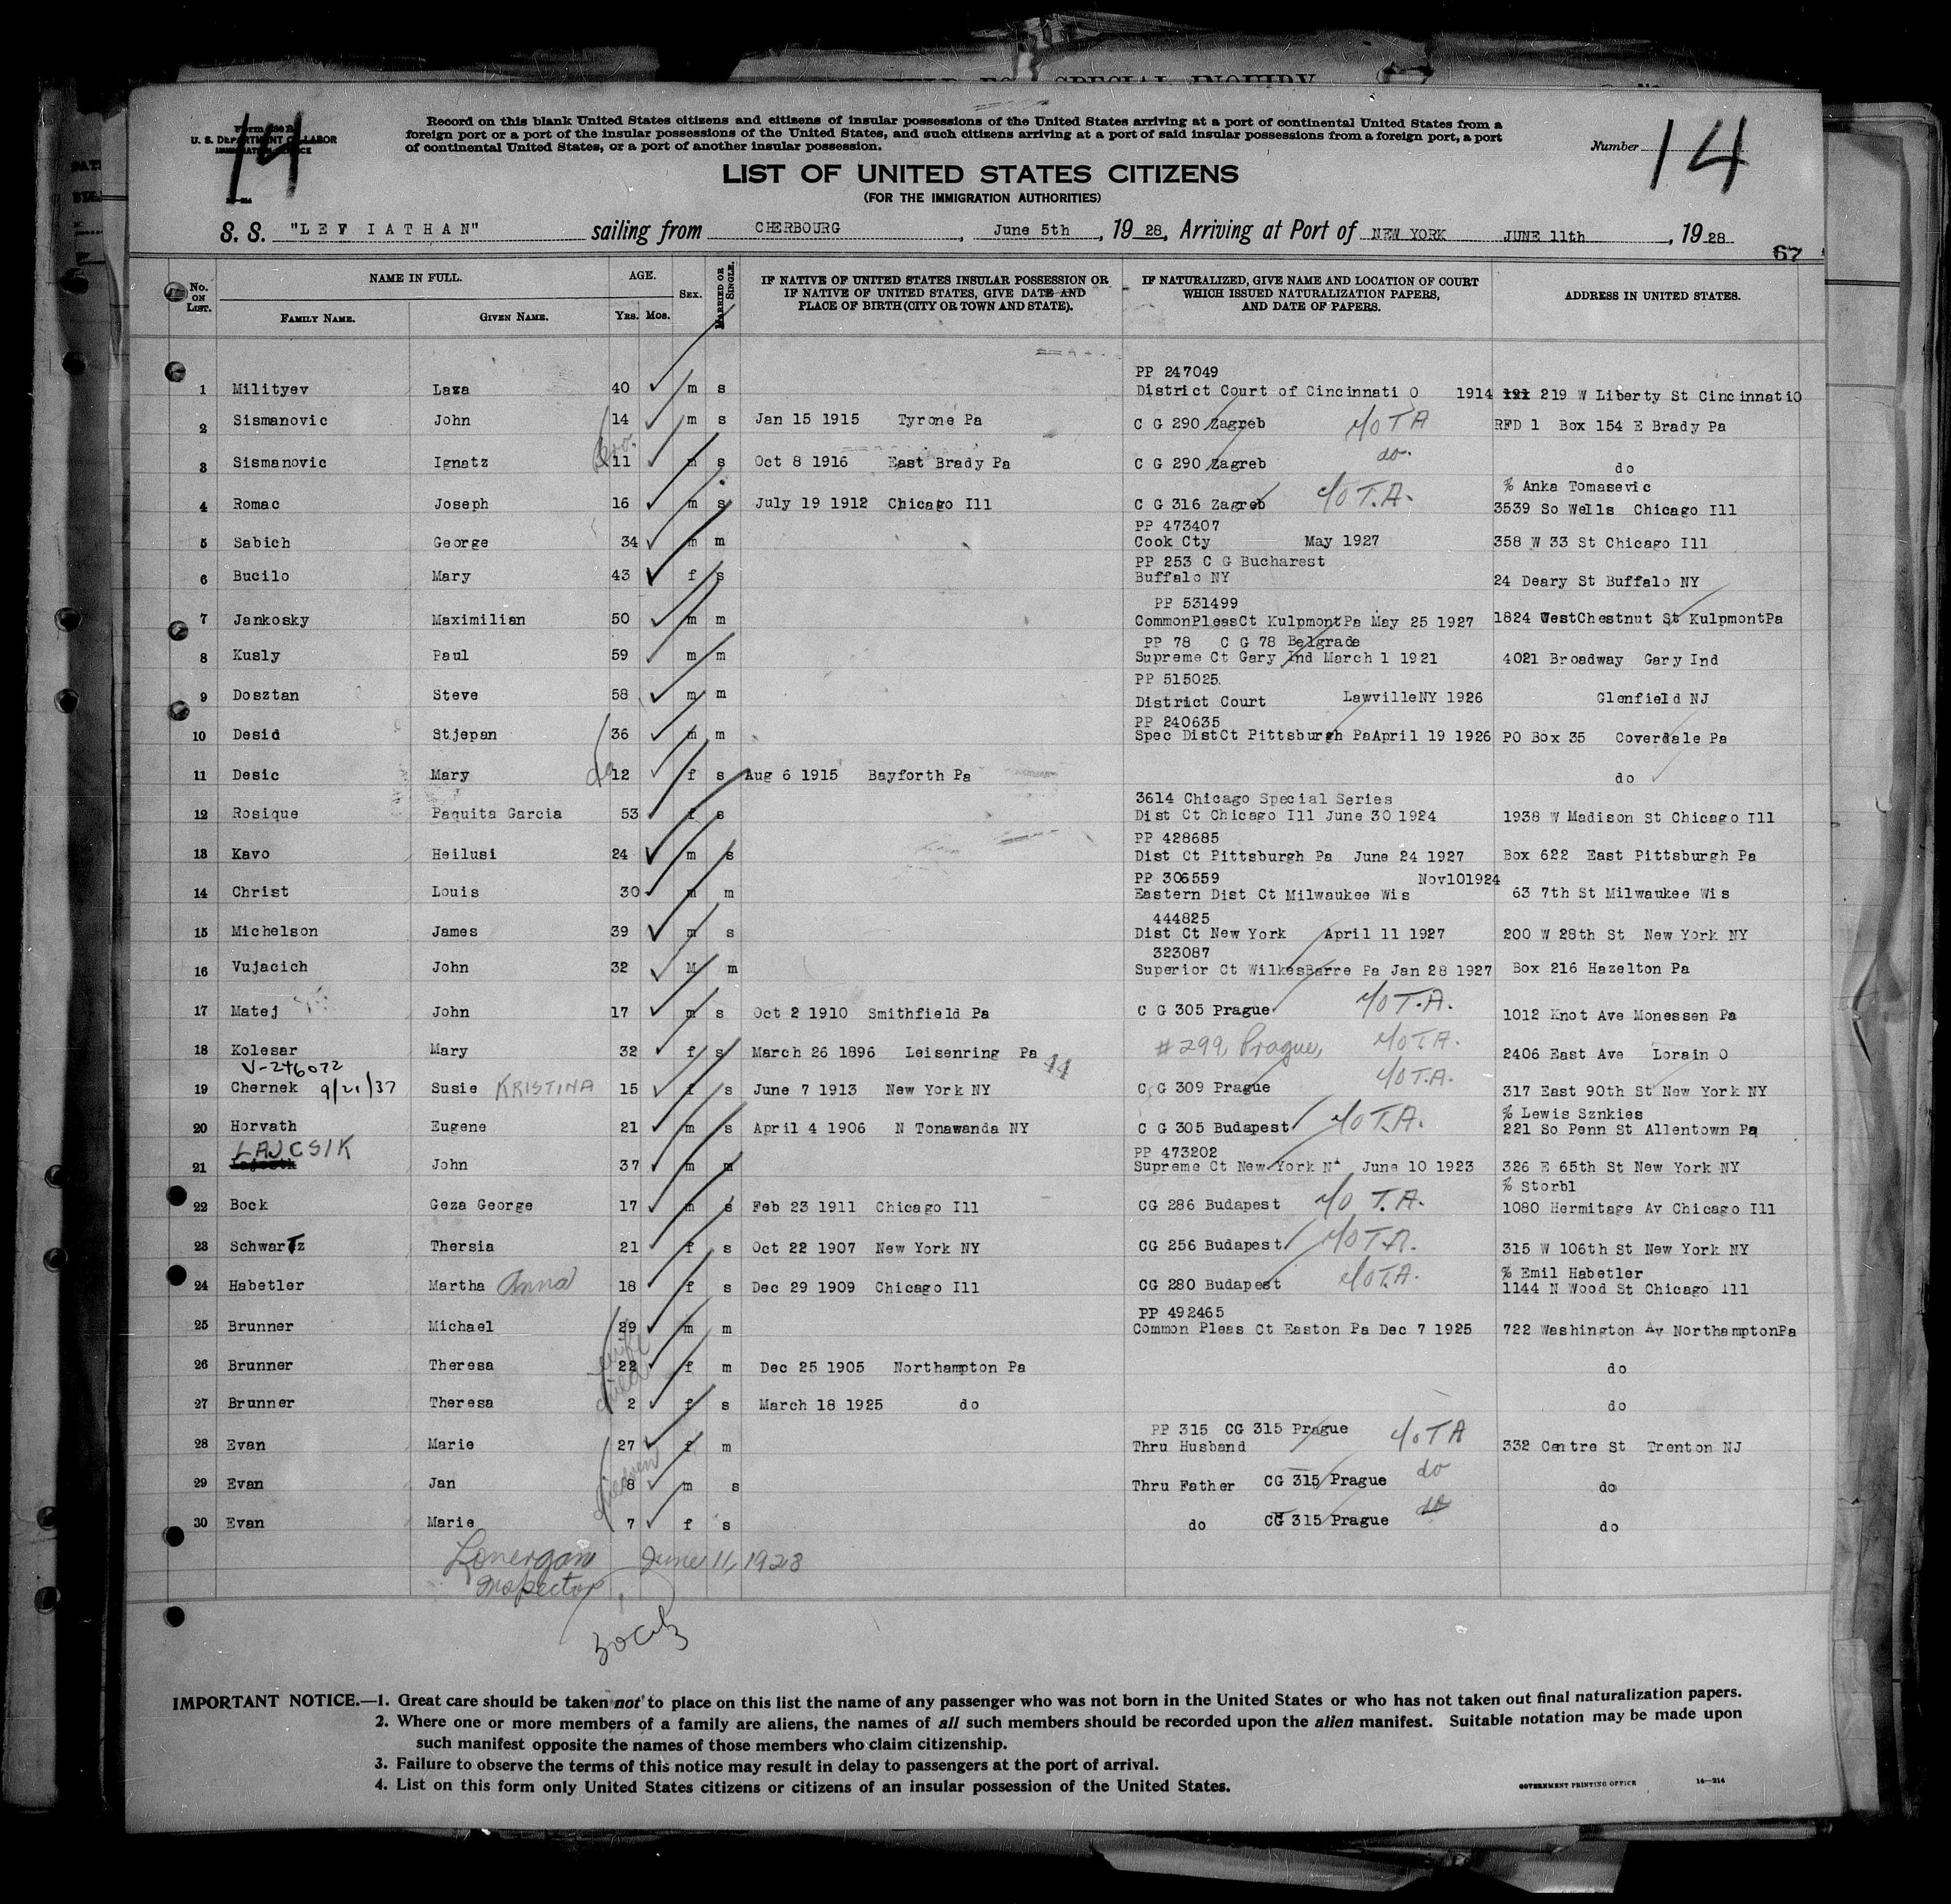 HELD FOR SPECIAL INQUIRY
14
U. S. DEPARTMENT OF LABOR
Record on this blank United States citizens and citizens of insular possessions of the United States arriving at a port of continental United States from a
foreign port or a port of the insular possessions of the United States, and such citizens arriving at a port of said insular possessions from a foreign port, a port
of continental United States, or a port of another insular possession.
Number 14
LIST OF UNITED STATES CITIZENS
(FOR THE IMMIGRATION AUTHORITIES)
S. S. "LEV IATHAN" sailing from CHERBOURG, June 5th, 1928, Arriving at Port of NEW YORK JUNE 11th, 1928
67
No. on List. NAME IN FULL. AGE. Sex. Married or Single. IF NATIVE OF UNITED STATES INSULAR POSSESSION OR IF NATIVE OF UNITED STATES, GIVE DATE AND PLACE OF BIRTH (CITY OR TOWN AND STATE). IF NATURALIZED, GIVE NAME AND LOCATION OF COURT WHICH ISSUED NATURALIZATION PAPERS, AND DATE OF PAPERS. ADDRESS IN UNITED STATES.
Family Name. Given Name. Yrs. Mos.
PP 247049
1 Milityev Laza 40 m s District Court of Cincinnati O 1914 121 219 W Liberty St CincinnatiO
2 Sismanovic John 14 m s Jan 15 1915 Tyrone Pa C G 290 Zagreb T A RFD 1 Box 154 E Brady Pa
3 Sismanovic Ignatz 11 m s Oct 8 1916 East Brady Pa C G 290 Zagreb do. do
% Anka Tomasevic
4 Romac Joseph 16 m s July 19 1912 Chicago Ill C G 316 Zagreb T.A. 3539 So Wells Chicago Ill
PP 473407
5 Sabich George 34 m m Cook Cty May 1927 358 W 33 St Chicago Ill
PP 253 C G Bucharest
6 Bucilo Mary 43 f s Buffalo NY 24 Deary St Buffalo NY
PP 531499
7 Jankosky Maximilian 50 m m CommonPleasCt KulpmontPa May 25 1927 1824 WestChestnut St KulpmontPa
PP 78 C G 78 Belgrade
8 Kusly Paul 59 m m Supreme Ct Gary Ind March 1 1921 4021 Broadway Gary Ind
PP 515025
9 Dosztan Steve 58 m m District Court LawvilleNY 1926 Glenfield NJ
PP 240635
10 Desid Stjepan 36 m m Spec DistCt Pittsburgh PaApril 19 1926 PO Box 35 Coverdale Pa
11 Desic Mary 12 f s Aug 6 1915 Bayforth Pa do
3614 Chicago Special Series
12 Rosique Paquita Garcia 53 f s Dist Ct Chicago Ill June 30 1924 1938 W Madison St Chicago Ill
PP 428685
13 Kavo Heilusi 24 m s Dist Ct Pittsburgh Pa June 24 1927 Box 622 East Pittsburgh Pa
PP 306559 Nov101924
14 Christ Louis 30 m m Eastern Dist Ct Milwaukee Wis 63 7th St Milwaukee Wis
444825
15 Michelson James 39 m s Dist Ct New York April 11 1927 200 W 28th St New York NY
323087
16 Vujacich John 32 M m Superior Ct WilkesBarre Pa Jan 28 1927 Box 216 Hazelton Pa
17 Matej John 17 m s Oct 2 1910 Smithfield Pa C G 305 Prague T.A. 1012 Knot Ave Monessen Pa
18 Kolesar Mary 32 f s March 26 1896 Leisenring Pa #299, Prague, T.A. 2406 East Ave Lorain O
V-246072
19 Chernek 9/21/37 Susie KRISTINA 15 f s June 7 1913 New York NY C G 309 Prague T.A. 317 East 90th St New York NY
% Lewis Sznkies
20 Horvath Eugene 21 m s April 4 1906 N Tonawanda NY C G 305 Budapest T.A. 221 So Penn St Allentown Pa
LAJCSIK PP 473202
21 John 37 m m Supreme Ct New York N June 10 1923 326 E 65th St New York NY
% Storbl
22 Bock Geza George 17 m s Feb 23 1911 Chicago Ill CG 286 Budapest T.A. 1080 Hermitage Av Chicago Ill
23 SchwarTz Thersia 21 f s Oct 22 1907 New York NY CG 256 Budapest T.A. 315 W 106th St New York NY
% Emil Habetler
24 Habetler Martha Anna 18 f s Dec 29 1909 Chicago Ill CG 280 Budapest T.A. 1144 N Wood St Chicago Ill
PP 492465
25 Brunner Michael 29 m m Common Pleas Ct Easton Pa Dec 7 1925 722 Washington Av NorthamptonPa
26 Brunner Theresa wife 22 f m Dec 25 1905 Northampton Pa do
27 Brunner Theresa child 2 f s March 18 1925 do do
PP 315 CG 315 Prague
28 Evan Marie 27 f m Thru Husband T A 332 Centre St Trenton NJ
29 Evan Jan children 8 m s Thru Father CG 315 Prague do do
30 Evan Marie 7 f s do CG 315 Prague do do
Lonergan June 11, 1928
Inspector
IMPORTANT NOTICE.—1. Great care should be taken not to place on this list the name of any passenger who was not born in the United States or who has not taken out final naturalization papers.
2. Where one or more members of a family are aliens, the names of all such members should be recorded upon the alien manifest. Suitable notation may be made upon
such manifest opposite the names of those members who claim citizenship.
3. Failure to observe the terms of this notice may result in delay to passengers at the port of arrival.
4. List on this form only United States citizens or citizens of an insular possession of the United States.
GOVERNMENT PRINTING OFFICE 14—214